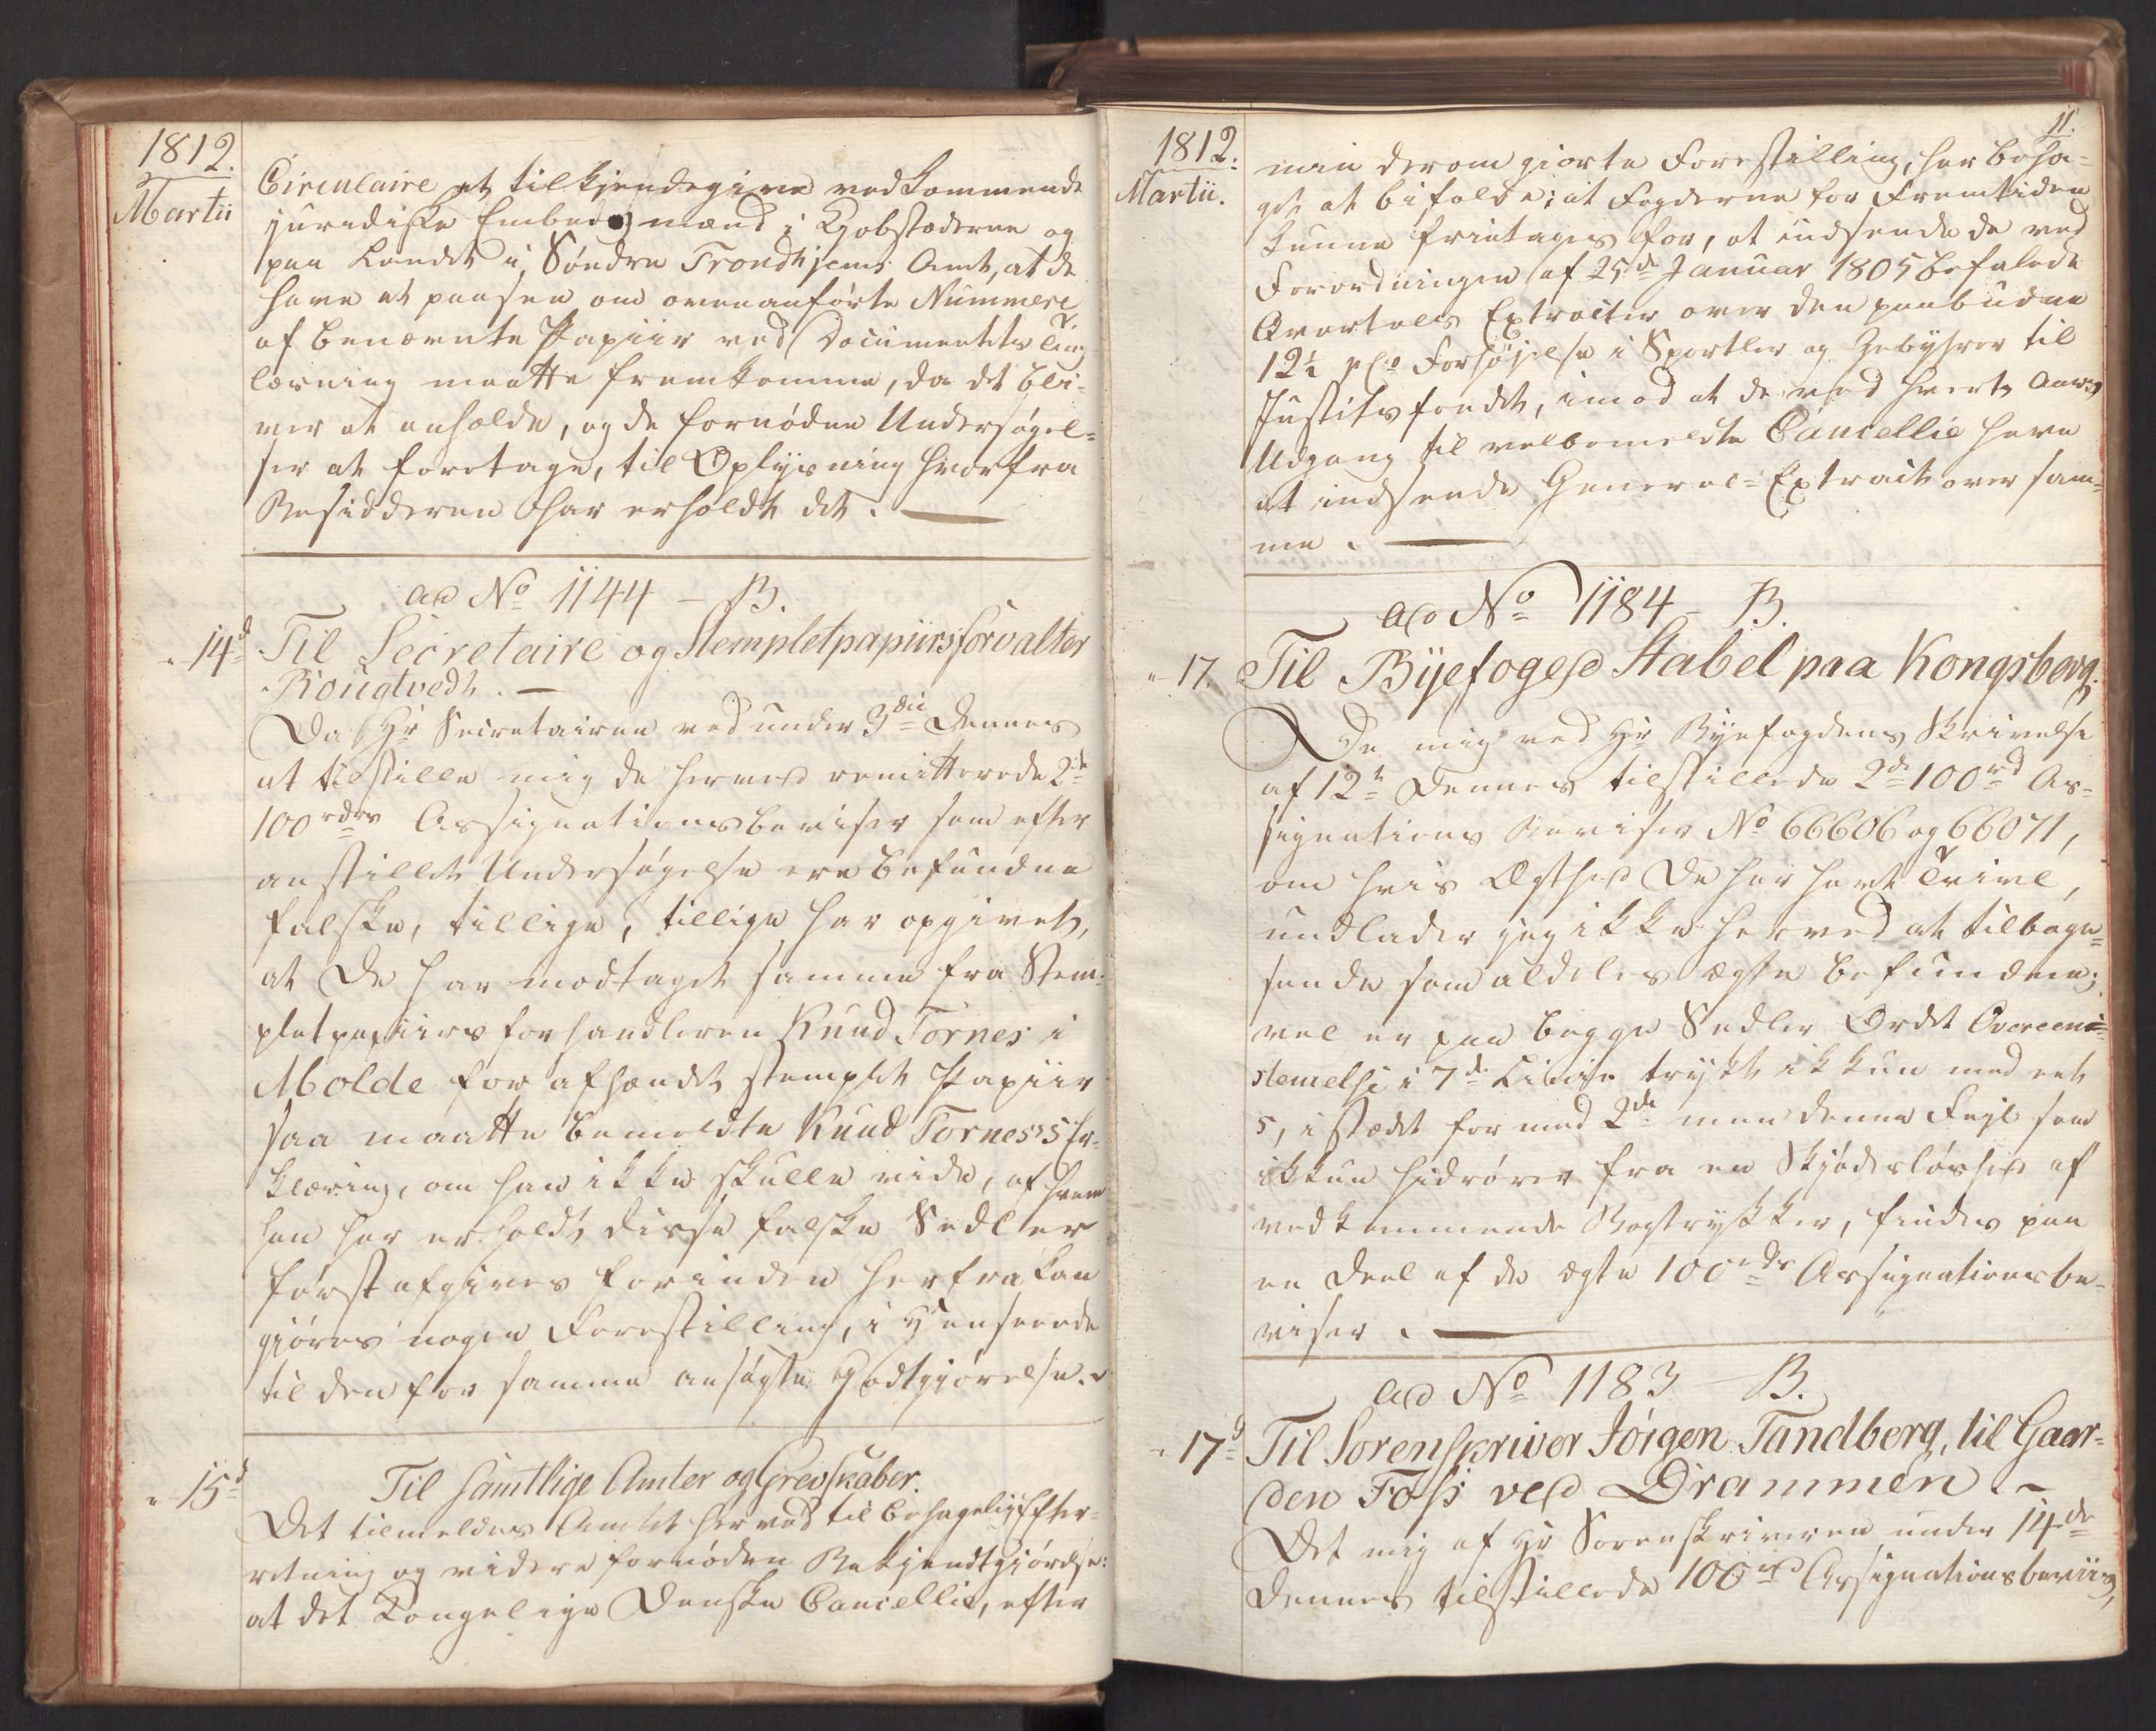 1812.
Martii
Circulaire at tilkjendegive vedkommende
juridiske Embedsmænd i Kjøbstæderne og
paa Landet i Søndre Trondhjems Amt, at de
have at paasee om ovenanførte Nummere
af benævnte Papiir ved Documenters Ting-
læsning maatte fremkomme, da det bli-
ver at anholde, og de fornødne Undersøgel-
ser at foretage, til Oplysning hvorfra
Besidderen har erholdt det.
ad No 1144 – B.
" 14d Til Secretaire og Stempletpapiirsforvalter
Rougtvedt. –
Da Hr Secretairen ved under 3die dennes
at tilstille mig de hermed remitterede 2de
100 rdrs Assignationsbeviser som efter
anstillet Undersøgelse ere befundne
falske, tillige, tillige har opgivet,
at De har modtaget samme fra Stem-
pletpapiirsforhandleren Knud Tornes i
Molde for afhændet stemplet Papiir
saa maatte bemeldte Knud Torness Er-
klæring, om han ikke skulle vide, af hvem
han har erholdt disse falske Sedler
først afgives forinden herfra kan
gjøres nogen Forestilling, i Henseende
til den for samme ansøgte Godtgjørelse.
" 15d Til samtlige Amter og Grevskaber.
Det tilmeldes Amtet herved til behagelig Efter-
retning og videre fornøden Bekjendtgjørelse:
at det Kongelige Danske Cancellie, efter
11.
1812.
Martii.
min derom giorte Forestilling, har beha-
get at bifalde; at Fogderne for Fremtiden
kunne fritages for, at indsende de ved
Forordningen af 25de Januar 1805 befalede
Qvartals Extracter over den paabudne
12½ pCt Forhøjelse i Sportler og Gebyhrer til
Justitsfondet, imod at de ved hvert Aars
Udgang til velbemeldte Cancellie have
at indsende General-Extract over sam-
me.
ad No 1184 – B.
" 17. Til Byefoged Stabel paa Kongsberg.
De mig ved Hr Byefogdens Skrivelse
af 12te dennes tilstillede 2de 100 rd As-
signations Beviser No 66606 og 66071,
om hvis Ægthed De har havt Tvivl,
undlader jeg ikke herved at tilbage-
sende som aldeles ægte befundne;
vel er paa begge Sedler Ordet Overeens-
stemelse i 7de Linie trykt ikkun med eet
s, istædet for med 2de men denne Fejl som
ikkun hidrører fra en Skjødesløshed af
vedkommende Bogtrykker, findes paa
en Deel af de ægte 100 rdrs Assignationsbe-
viser.
ad No 1183 B.
" 17d Til Sorenskriver Jörgen Tandberg, til Gaar-
den Foss ved Drammen. –
Det mig af Hr Sorenskriveren under 14de
dennes tilstillede 100 rd Assignationsbeviis,